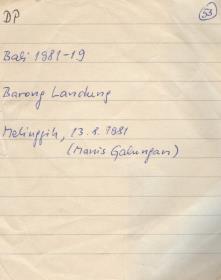 DP
53
Bali 1981-19
Barong Landung
Melinggih, 13.8.1981
(Manis Galungan)